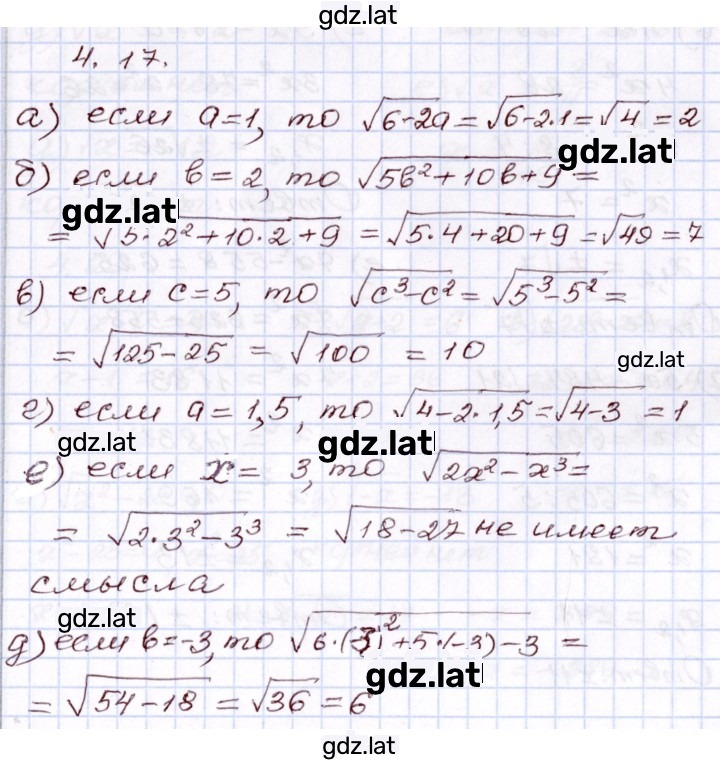 gdz.lat
4. 17.
а) если a=1, то √6-2a = √6-2·1 = √4 = 2
gdz.lat
б) если b=2, то √5b²+10b+9 =
gdz.lat
= √5·2²+10·2+9 = √5·4+20+9 = √49 = 7
в) если c=5, то √c³-c² = √5³-5² =
= √125-25 = √100 = 10
gdz.lat
г) если a=1,5, то √4-2·1,5 = √4-3 = 1
gdz.lat gdz.lat
е) если x= 3, то √2x²-x³ =
= √2·3²-3³ = √18-27 не имеет
смысла
gdz.lat
д) если b=-3, то √6·(-3)²+5·(-3)-3 =
gdz.lat
= √54-18 = √36 = 6
gdz.lat